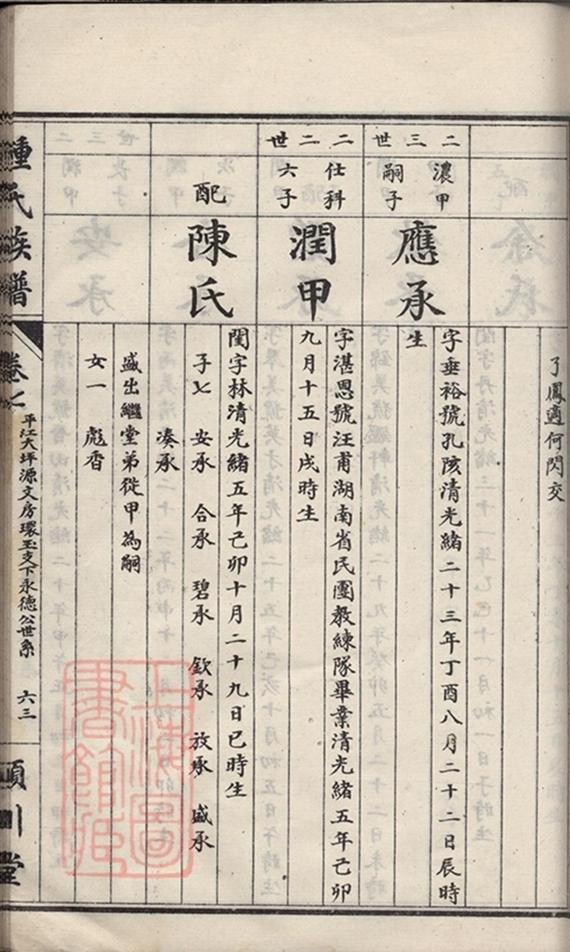 了鳳適何閃交
二三世
濃甲
嗣子
應承
字垂裕號孔陔清光緒二十三年丁酉八月二十二日辰時
生
二二世
仕科
六子
潤甲
字湛恩號汪甫湖南省民團教練隊畢業清光緒五年己卯
九月十五日戌時生
配
陳氏
閨字林清光緒五年己卯十月二十九日巳時生
子七 安承 合承 碧承 欽承 放承 盛承
凑承
盛出繼堂弟從甲為嗣
女一 彪香
鍾氏族譜
卷七
平江大坪源文房環玉支下永德公世系
六三
潁川堂